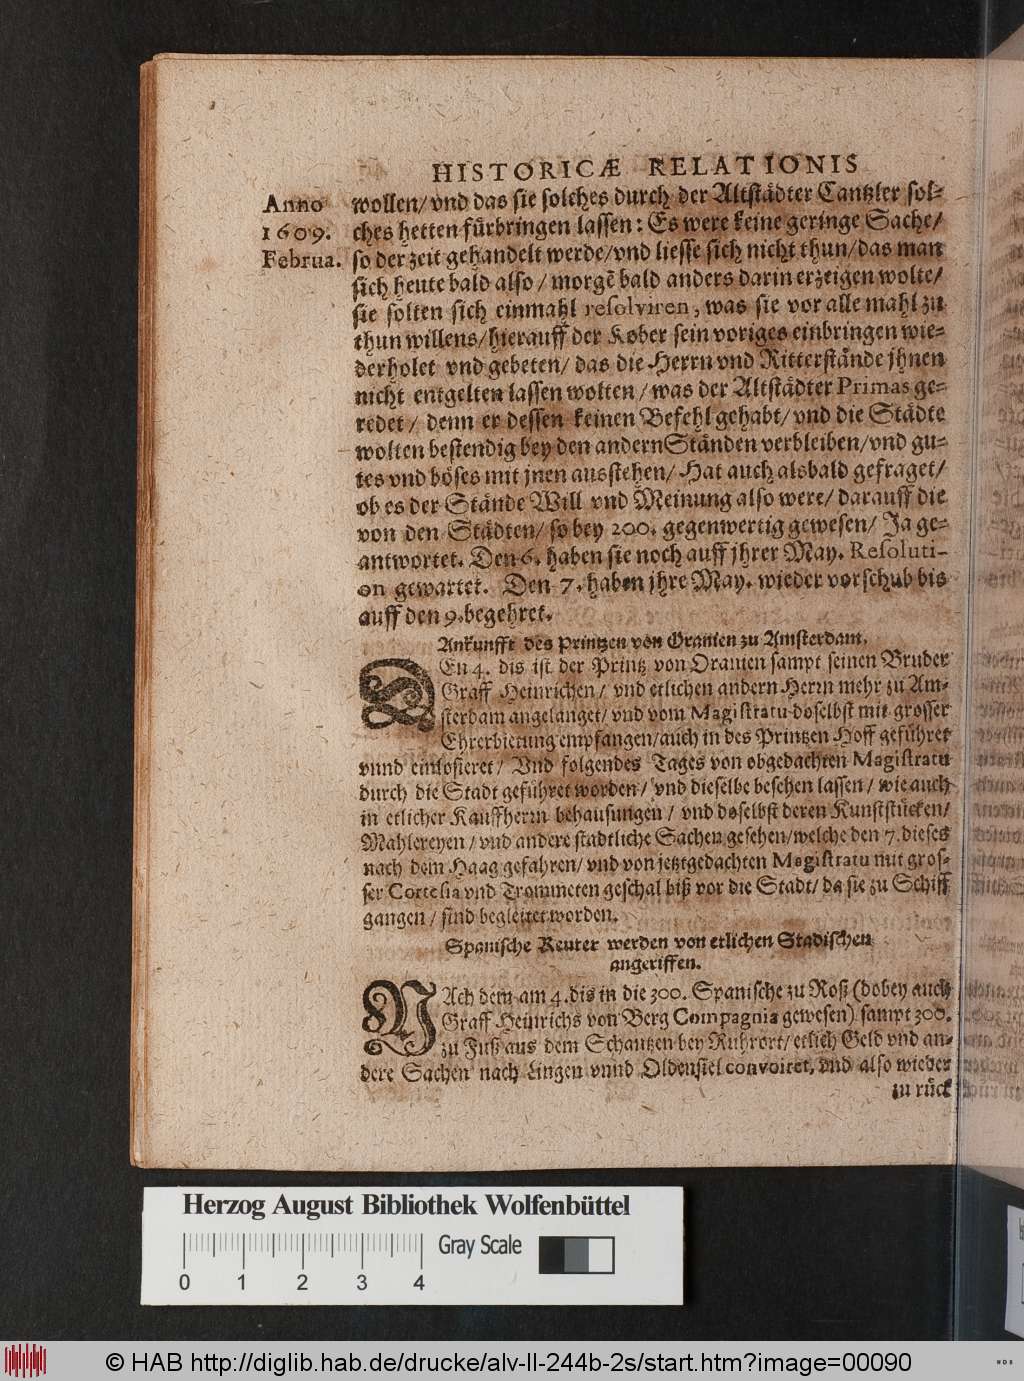 HISTORICÆ RELATIONIS
Anno
1609.
Februa.
wollen/ vnd das sie solches durch der Altstädter Cantzler sol-
ches hetten fürbringen lassen: Es were keine geringe Sache/
so der zeit gehandelt werde/vnd liesse sich nicht thun/das man
sich heute bald also / morgē bald anders darin erzeigen wolte/
sie solten sich einmahl resolviren, was sie vor alle mahl zu
thun willens/hierauff der Kober sein voriges einbringen wie-
derholet vnd gebeten/ das die Herrn vnd Ritterstände jhnen
nicht entgelten lassen wolten / was der Altstädter Primas ge-
redet / denn er dessen keinen Befehl gehabt/ vnd die Städte
wolten bestendig bey den andern Ständen verbleiben/vnd gu-
tes vnd böses mit jnen ausstehen/ Hat auch alsbald gefraget/
ob es der Stände Will vnd Meinung also were/ darauff die
von den Städten/ so bey 200. gegenwertig gewesen/ Ja ge-
antwortet. Den 6. haben sie noch auff jhrer May. Resoluti-
on gewartet. Den 7. haben jhre May. wieder vorschub bis
auff den 9. begehret.
Ankunfft des Printzen von Oranien zu Amsterdam.
DEn 4. dis ist der Printz von Oranien sampt seinen Bruder
Graff Heinrichen / vnd etlichen andern Herrn mehr zu Am-
sterdam angelanget/ vnd vom Magistratu doselbst mit grosser
Ehrerbietung empfangen/auch in des Printzen Hoff geführet
vnnd einlosieret / Vnd folgendes Tages von obgedachten Magistratu
durch die Stadt geführet worden/ vnd dieselbe besehen lassen / wie auch
in etlicher Kauffherrn behausungen / vnd doselbst deren Kunststücken/
Mahlereyen / vnd andere stadtliche Sachen gesehen/welche den 7. dieses
nach dem Haag gefahren/ vnd von jetztgedachten Magistratu mit gros-
ser Cortesia vnd Trommeten geschal biß vor die Stadt/ da sie zu Schiff
gangen / sind begleitet worden.
Spanische Reuter werden von etlichen Stadischen
angeriffen.
NAch dem am 4. dis in die 300. Spanische zu Roß (dobey auch
Graff Heinrichs von Berg Compagnia gewesen) sampt 300.
zu Fuß aus dem Schantzen bey Ruhrort/ etlich Geld vnd an-
dere Sachen nach Lingen vnnd Oldensiel convoiret, vnd also wieder
zu rück
Herzog August Bibliothek Wolfenbüttel
Gray Scale
0 1 2 3 4
© HAB http://diglib.hab.de/drucke/alv-ll-244b-2s/start.htm?image=00090